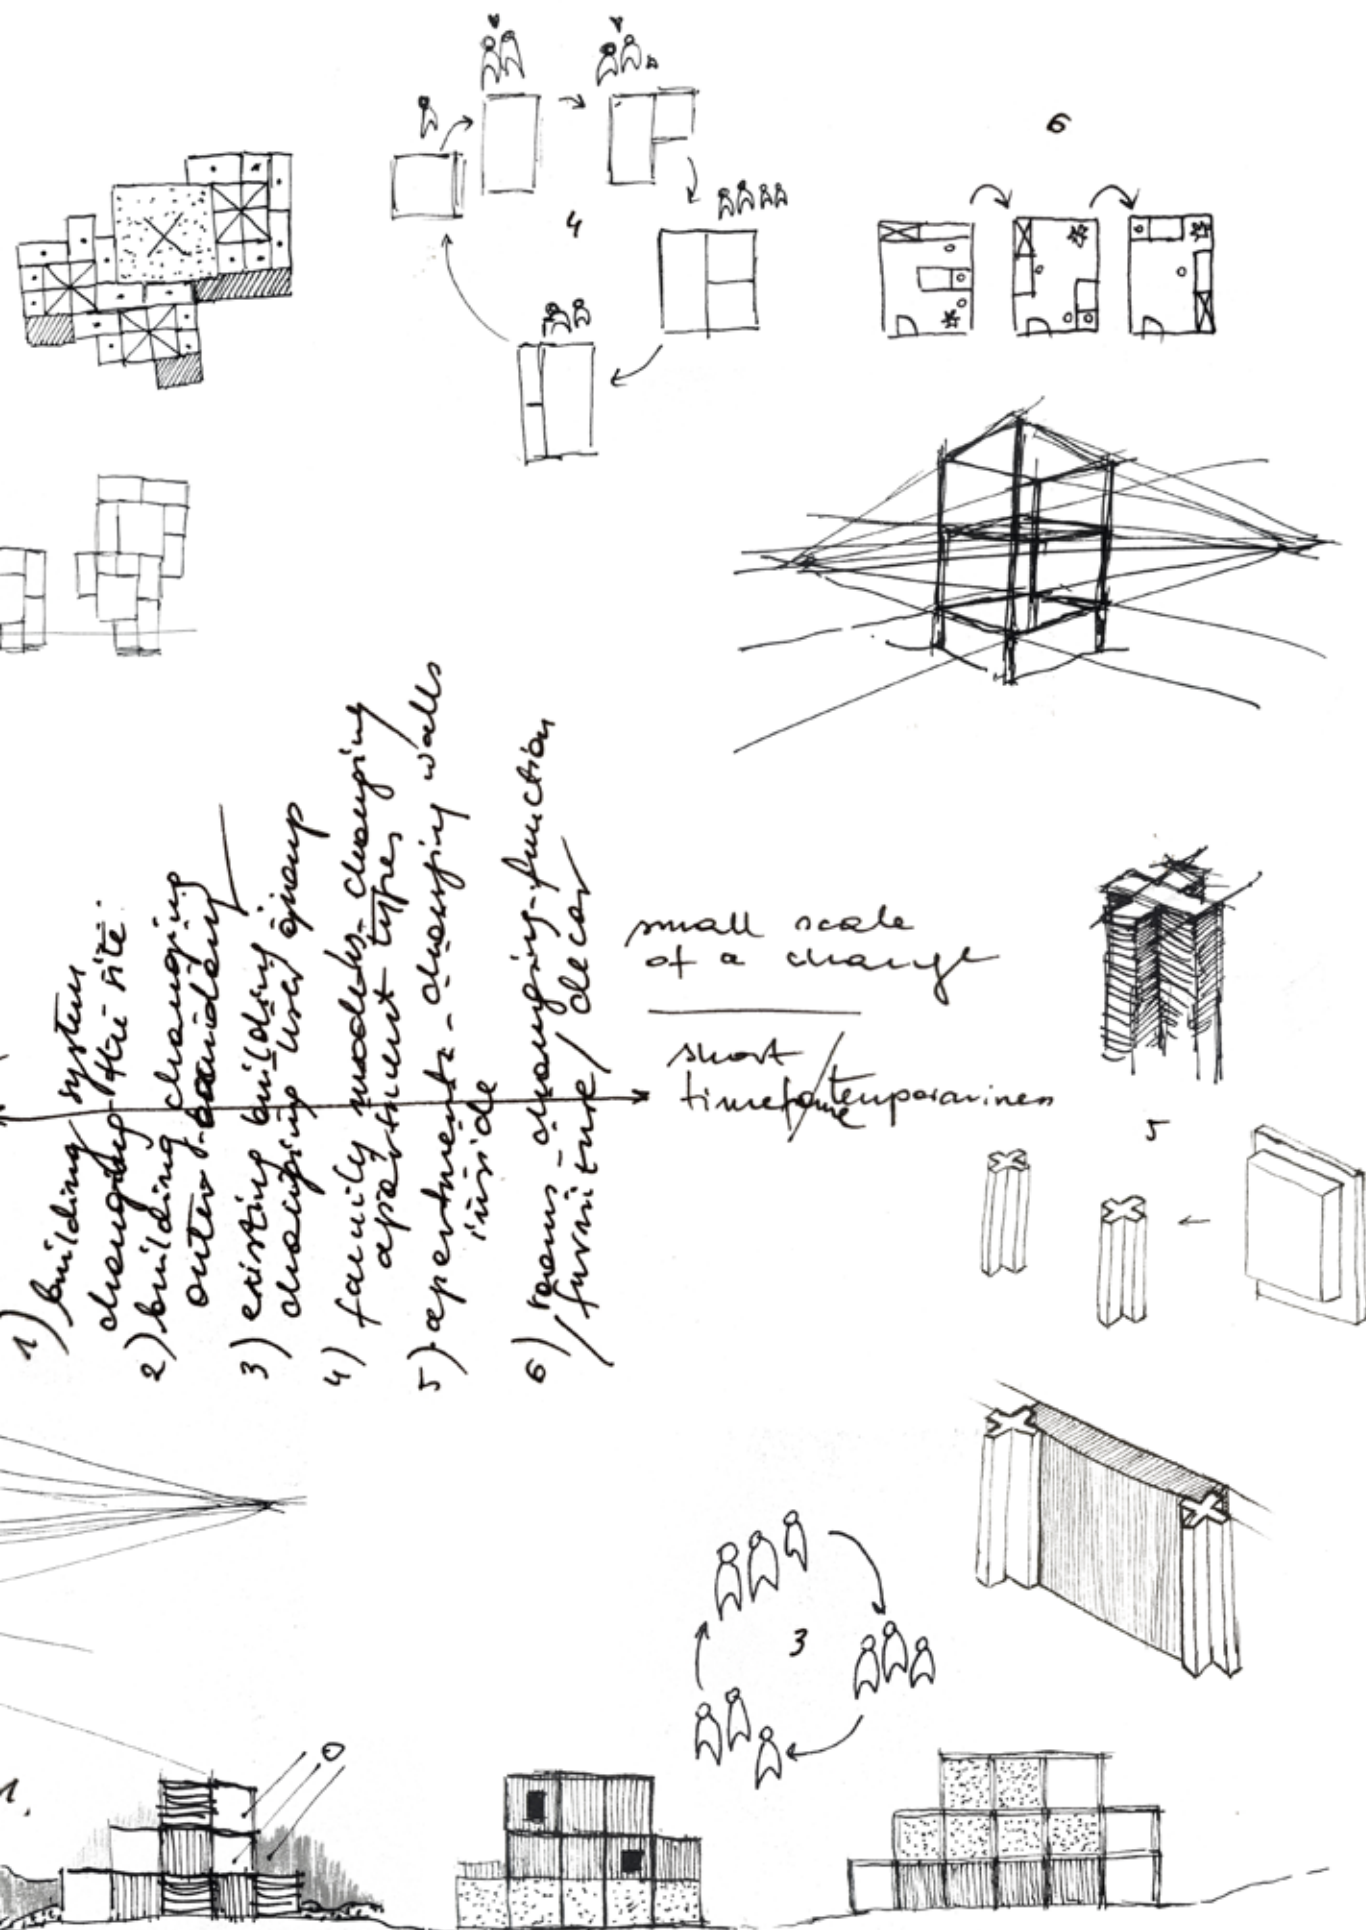 4
6
1) building system
changing the site
2) building changing
outer boundary
3) existing building
changing user group
4) family models - changing
apartment types
5) apartments - changing walls
inside
6) rooms - changing function
/ furniture / decor
small scale
of a change
short
timeframe / temporariness
5
3
1.